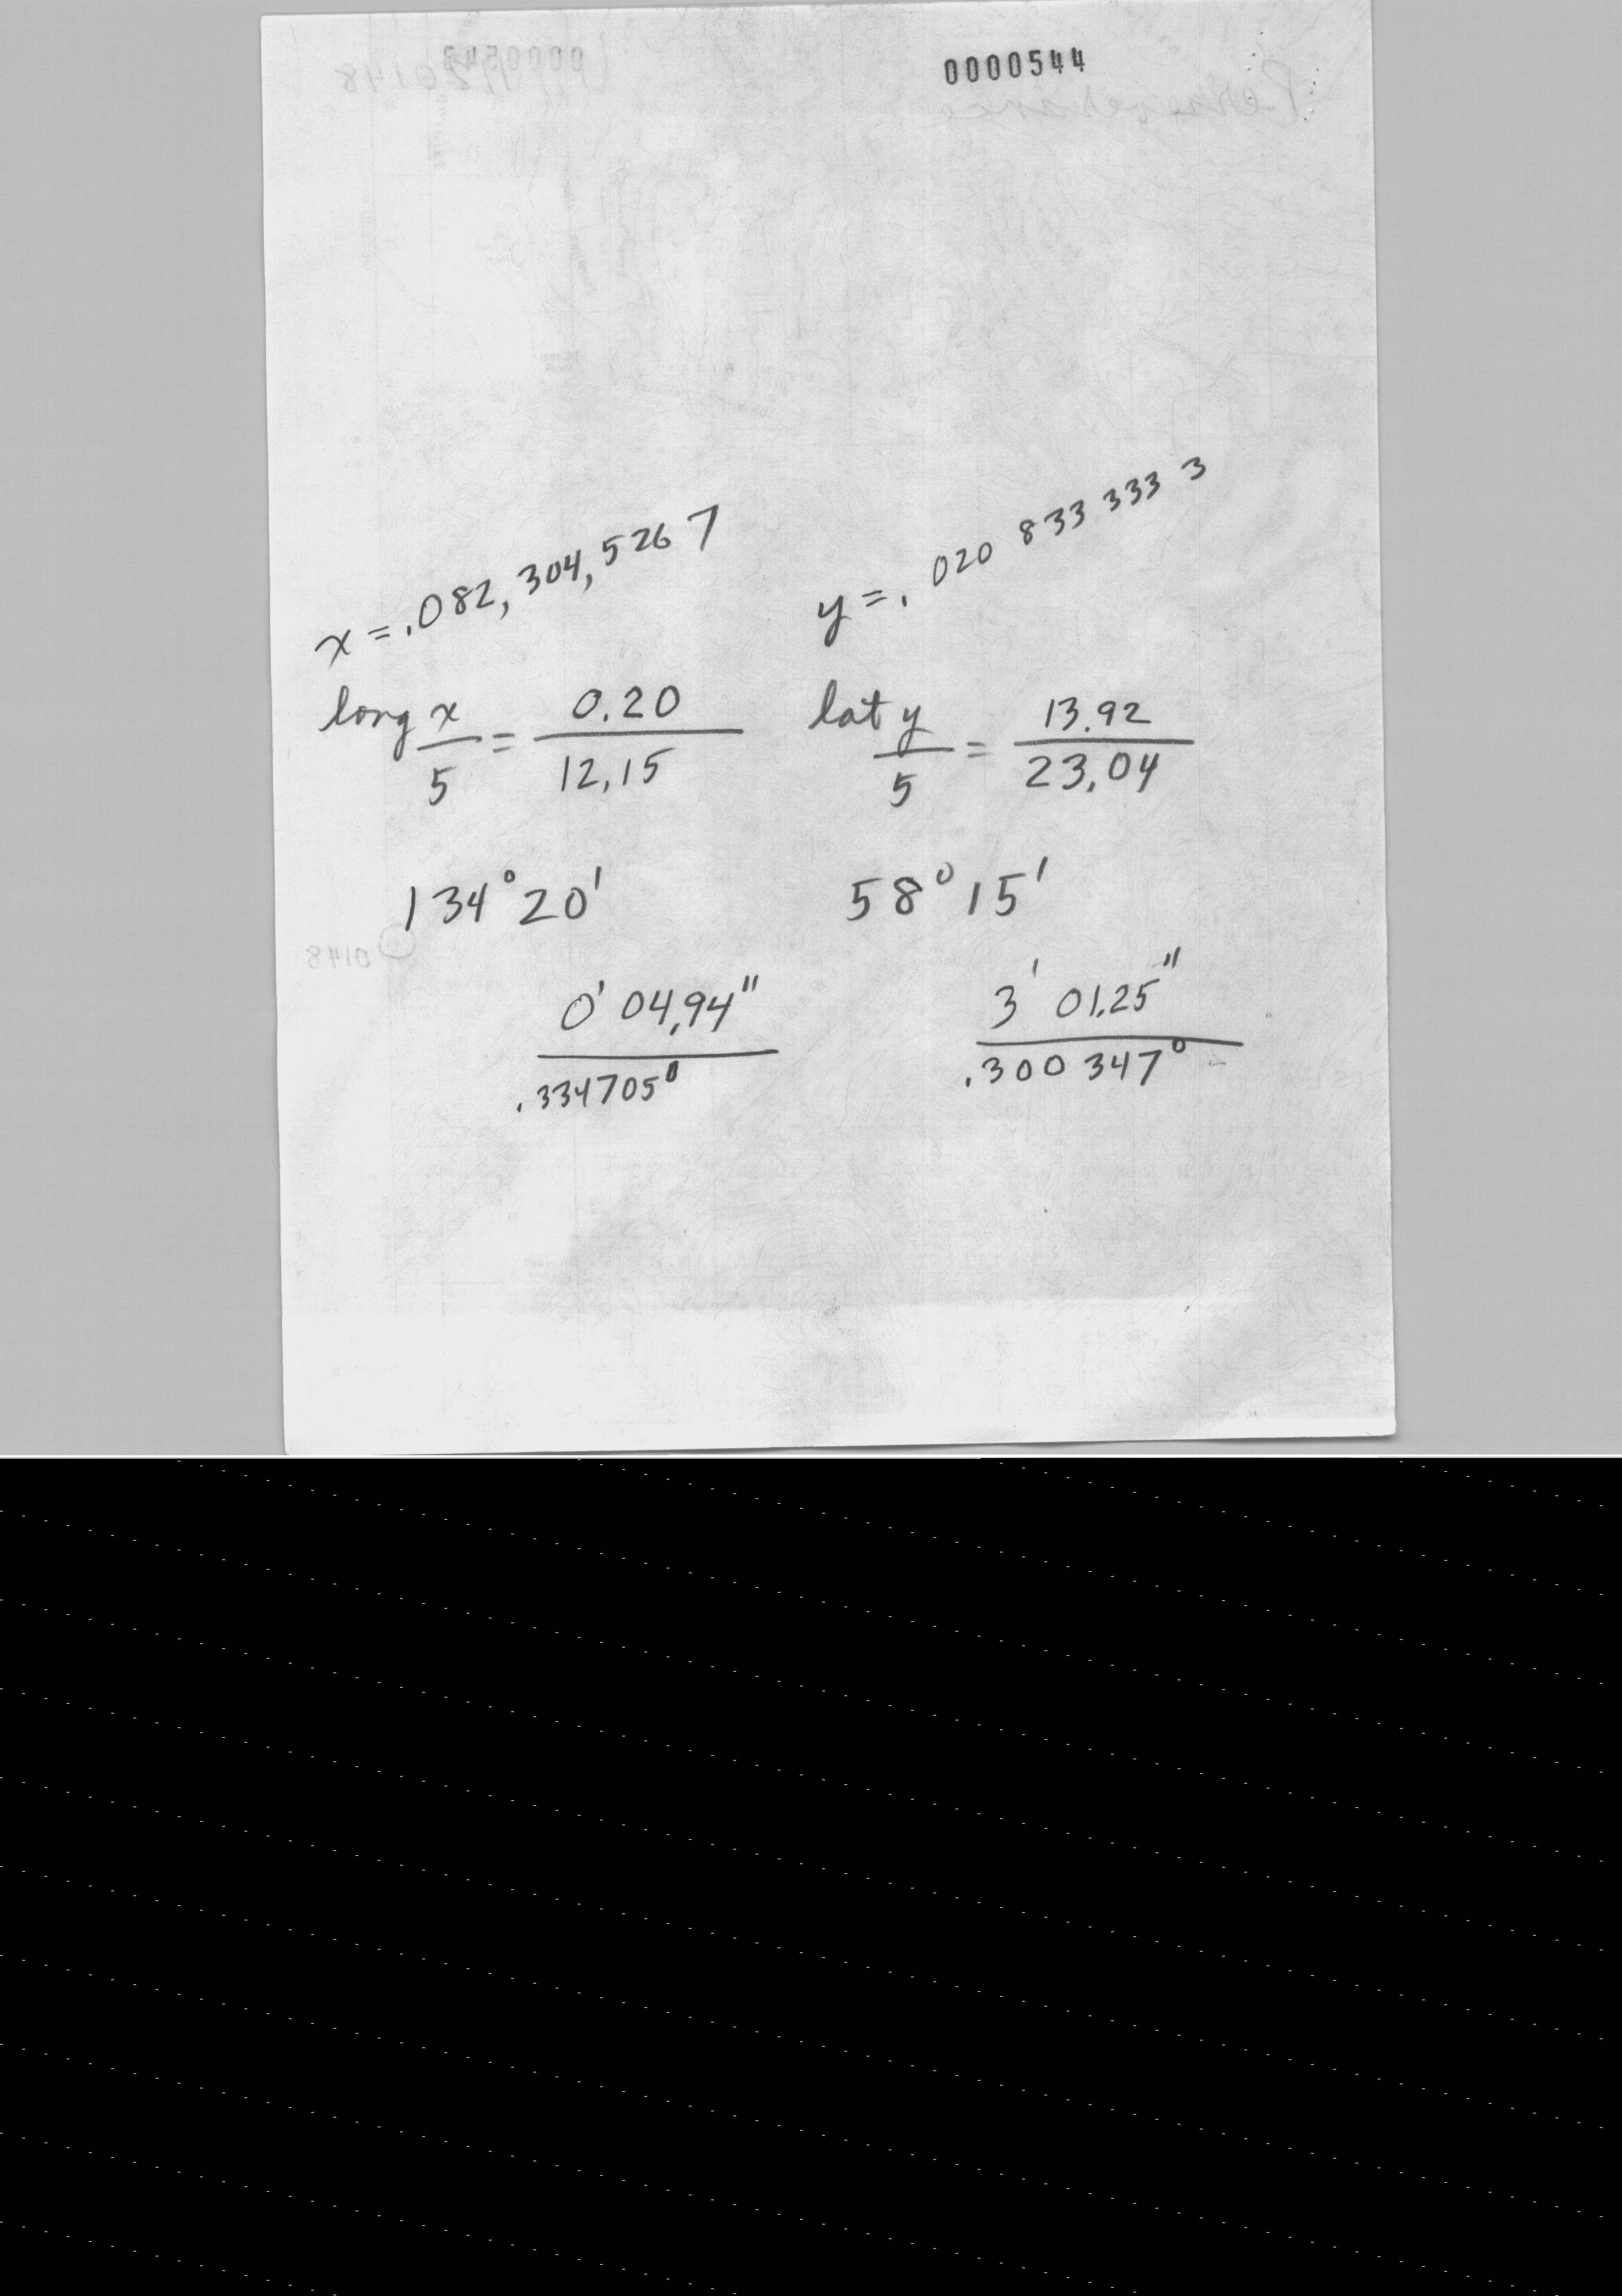 0000544
x = .082,304,5267
y = .020 833 333 3
long x/5 = 0.20/12.15
lat y/5 = 13.92/23.04
134° 20'
58° 15'
0' 04.94"
.334705°
3' 01.25"
.300 347°